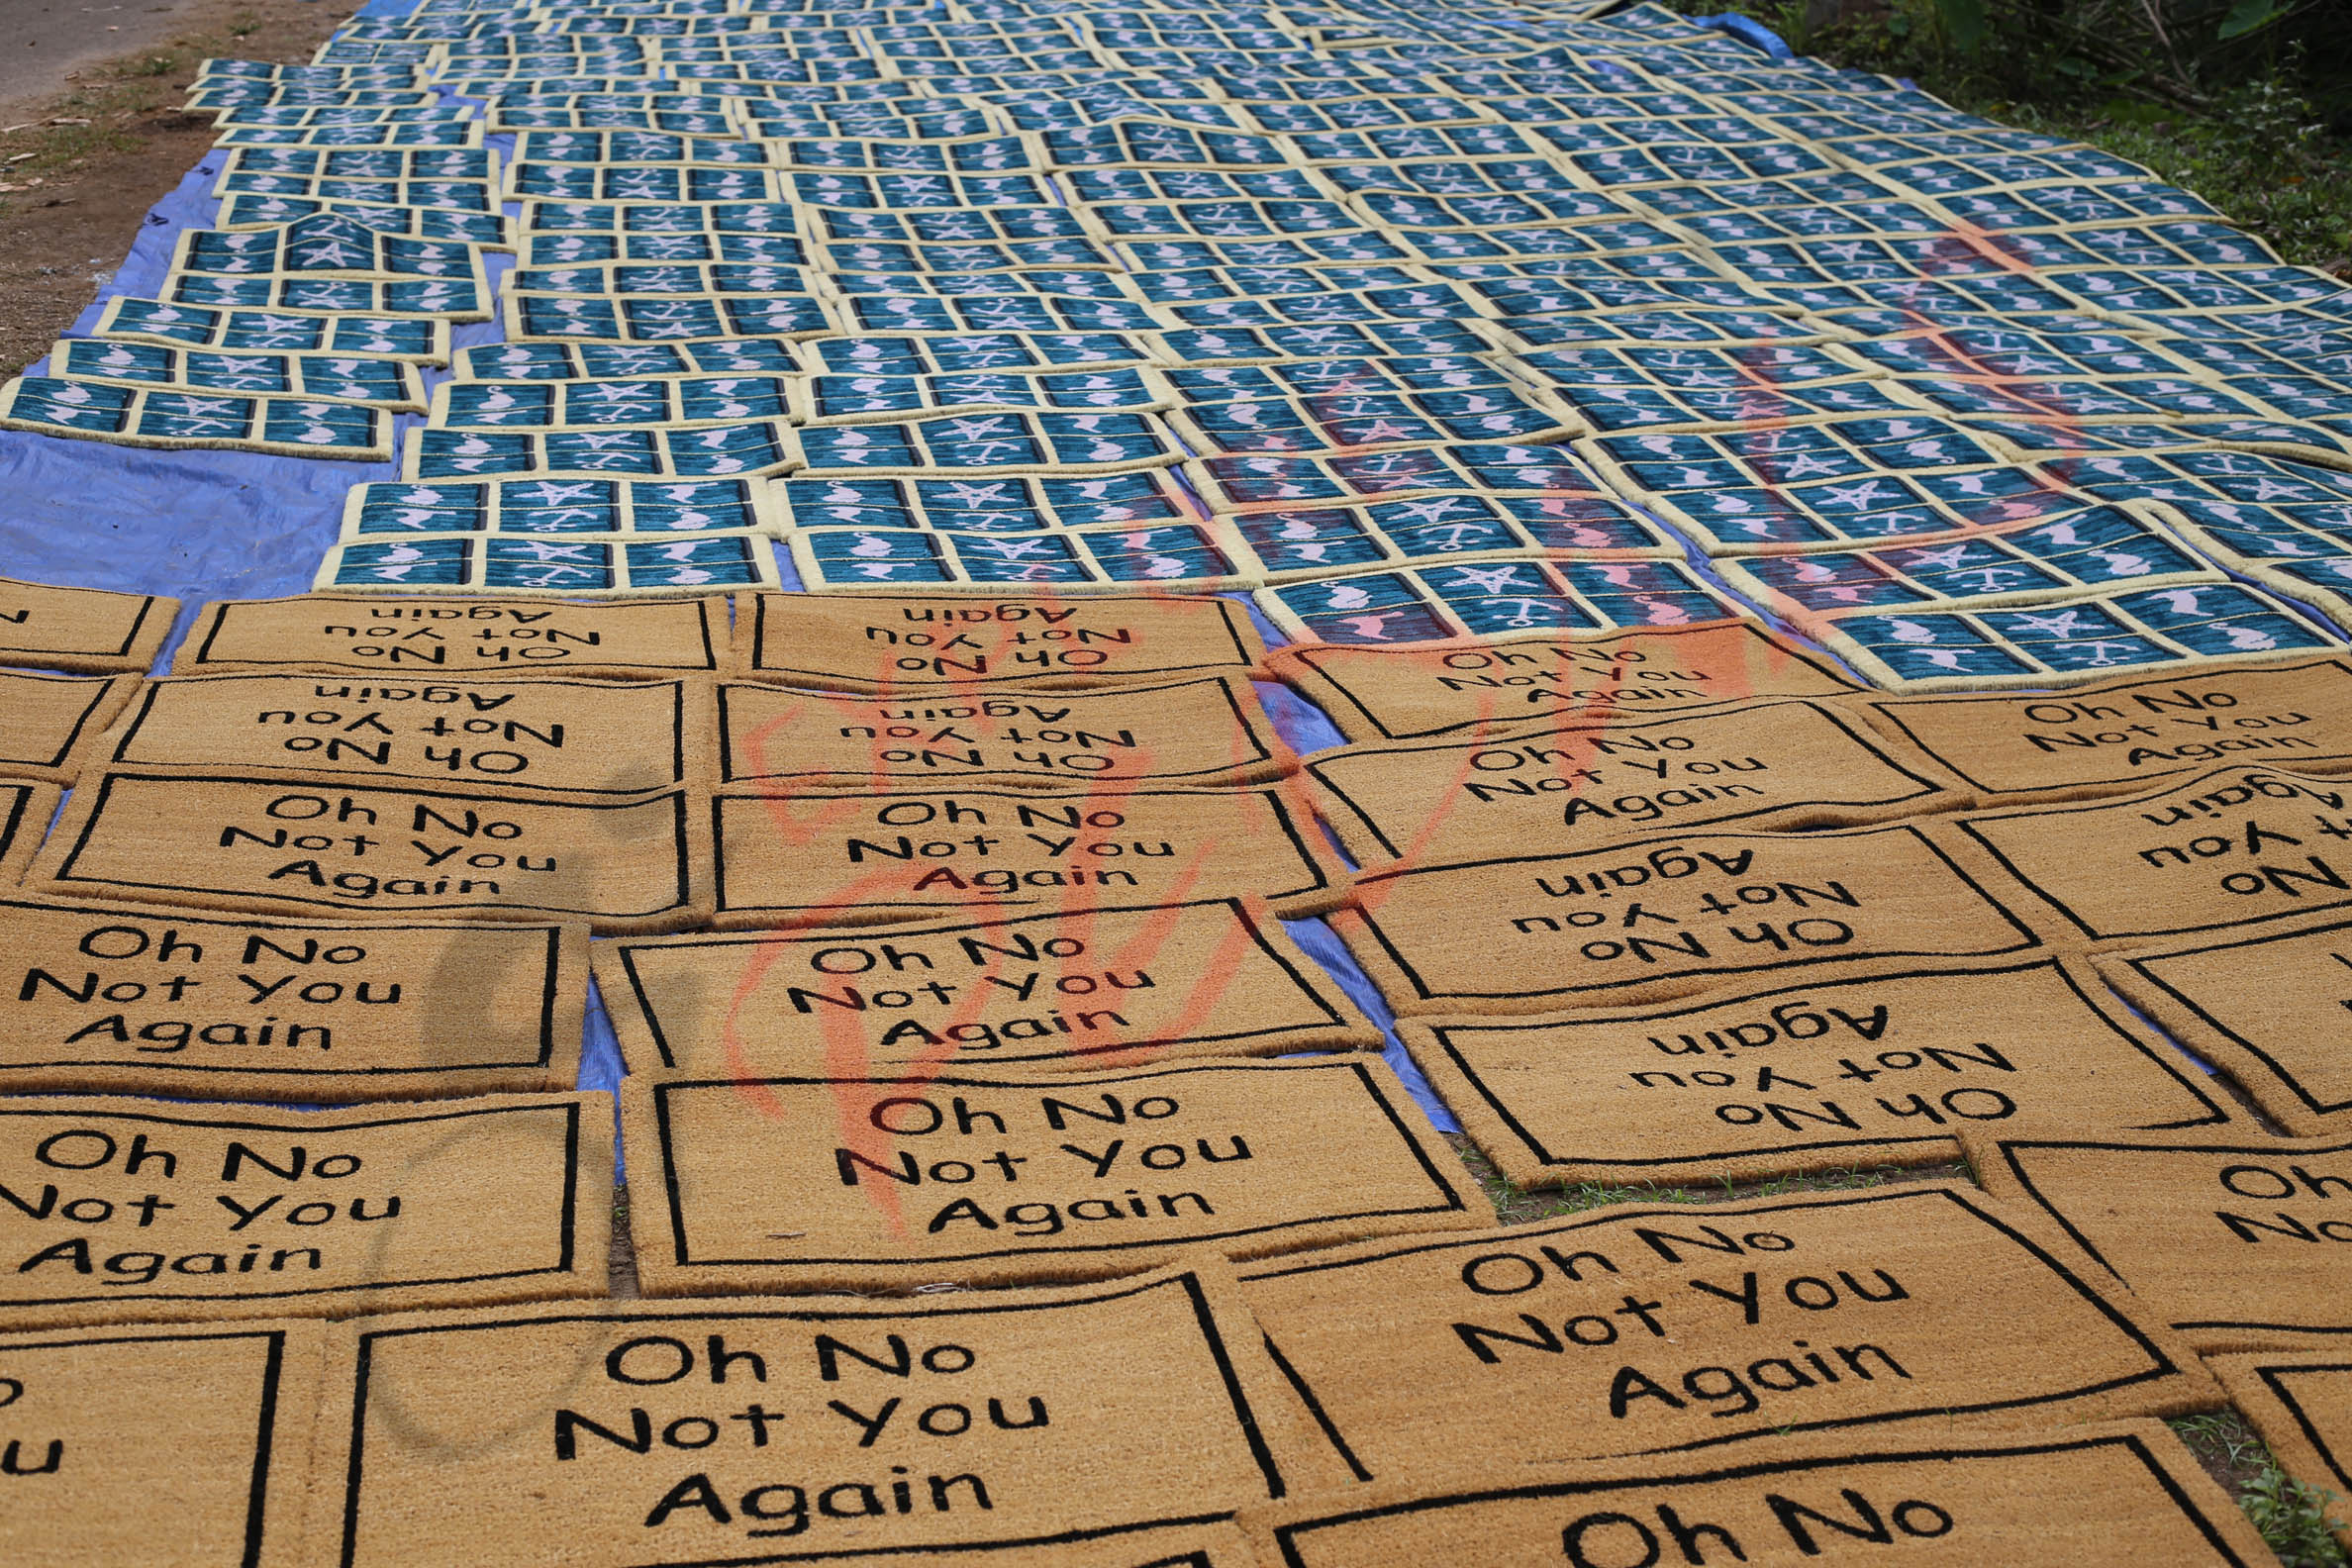 Again
Not You
Oh No
Again
Not You
Oh No
Oh No
Not You
Again
Again
Not You
Oh No
Again
Not You
Oh No
Oh No
Not You
Again
Oh No
Not You
Again
Oh No
Not You
Again
Oh No
Not You
Again
Oh No
Not You
Again
Again
Not You
Oh No
Again
No
Oh No
Not You
Again
Oh No
Not You
Again
Again
Not You
Oh No
Oh No
Not You
Again
Oh No
Not You
Again
Oh
Oh No
Not You
Again
Oh No
Not You
Again
Oh No